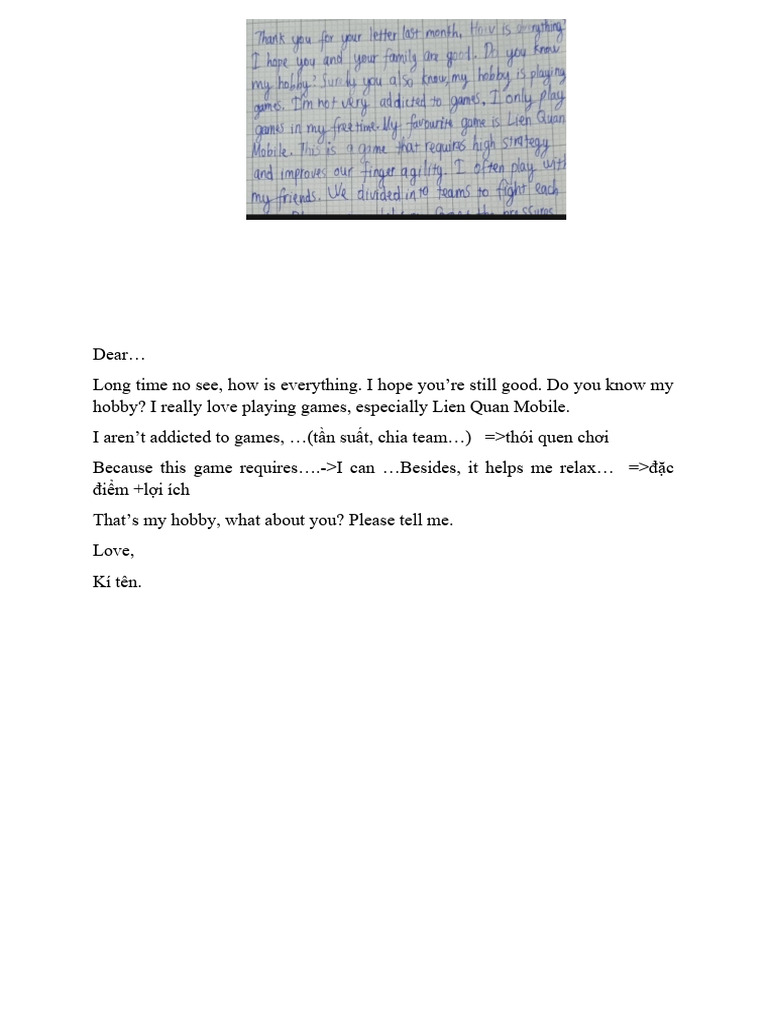 Thank you for your letter last month. How is everything
I hope you and your family are good. Do you know
my hobby? Surely you also know, my hobby is playing
games. I'm not very addicted to games, I only play
games in my free time. My favourite game is Lien Quan
Mobile. This is a game that requires high strategy
and improves our finger agility. I often play with
my friends. We divided into teams to fight each
the pressures
Dear…
Long time no see, how is everything. I hope you’re still good. Do you know my
hobby? I really love playing games, especially Lien Quan Mobile.
I aren’t addicted to games, …(tần suất, chia team…) =>thói quen chơi
Because this game requires….->I can …Besides, it helps me relax… =>đặc
điểm +lợi ích
That’s my hobby, what about you? Please tell me.
Love,
Kí tên.